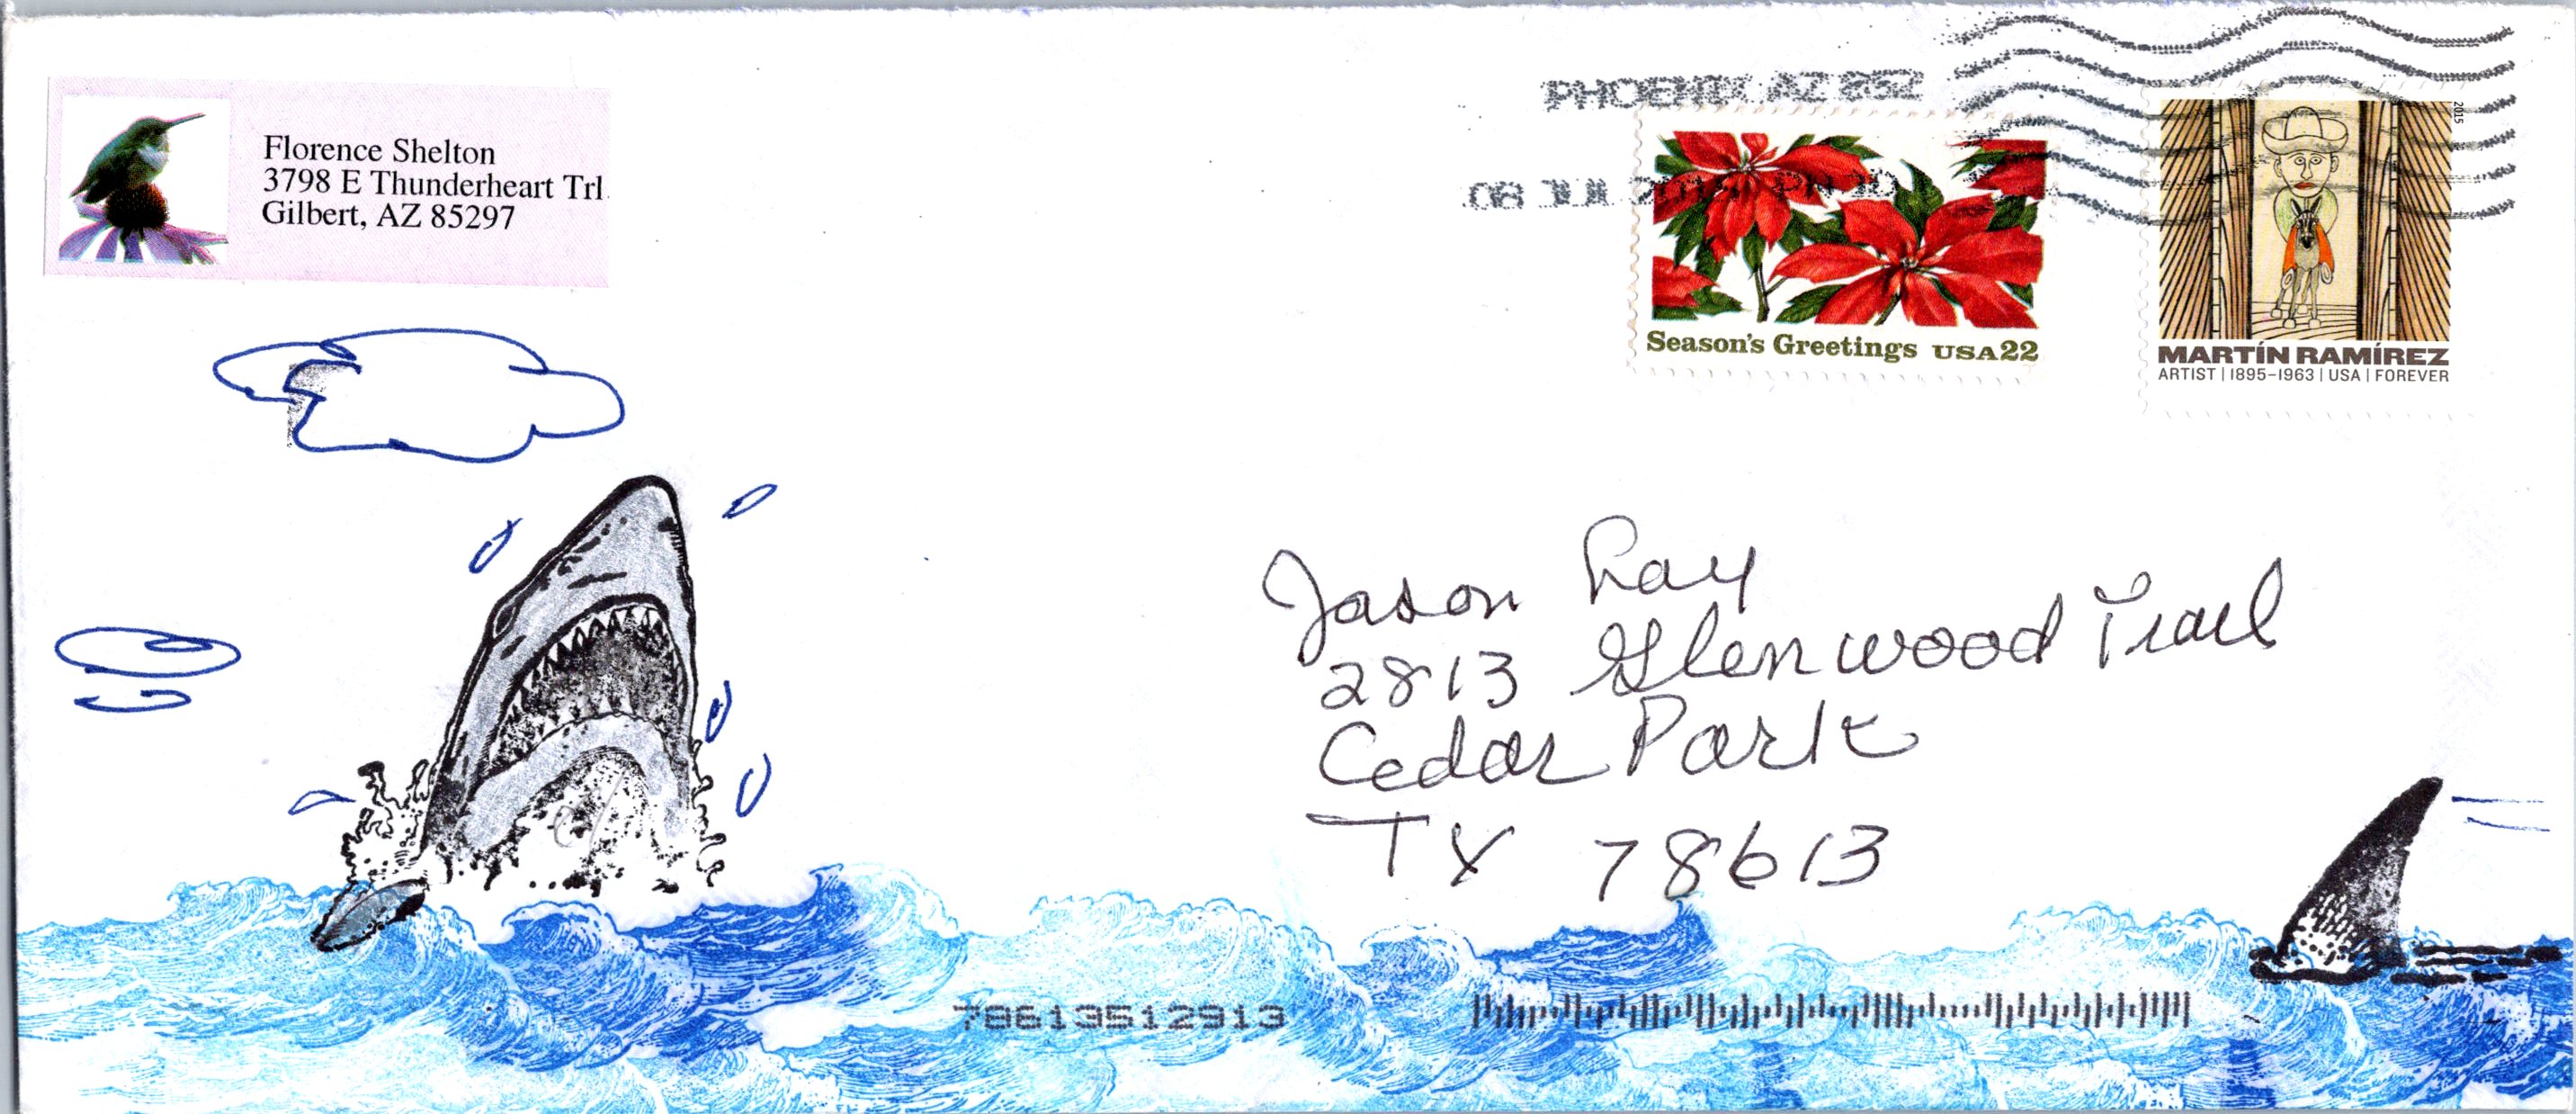 Florence Shelton
3798 E Thunderheart Trl.
Gilbert, AZ 85297
PHOENIX AZ 852
08 JUL PM 10 L
Season's Greetings USA 22
2015
MARTÍN RAMÍREZ
ARTIST | 1895–1963 | USA | FOREVER
Jason Lay
2813 Glenwood Trail
Cedar Park
TX 78613
78613512913